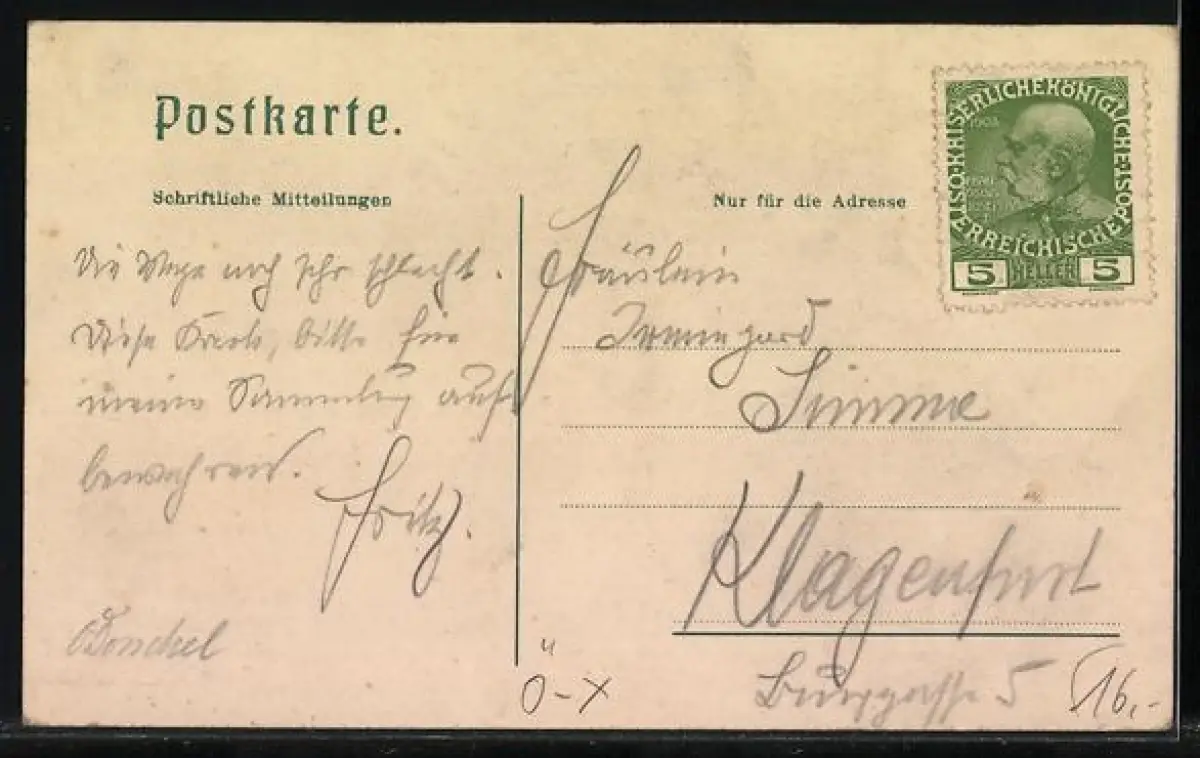 Postkarte.
Schriftliche Mitteilungen
Nur für die Adresse
ÖSTERREICHISCHE POST KAISERLICHE KÖNIGLICHE
1908
5 HELLER 5
Die Wege noch sehr schlecht.
Diese Karte, bitte für
meine Sammlung auf
bewahren.
Fritz.
Fräulein
Irmingard
Simme
Klagenfurt
Burggasse 5
Ö-X
16,-